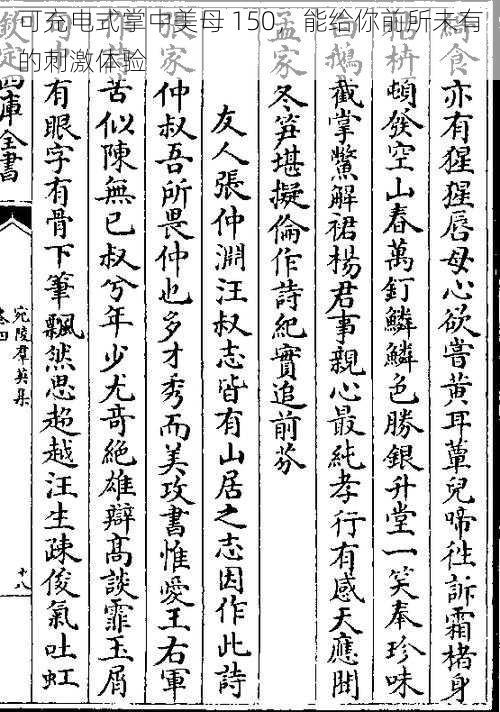 可充电式掌中美母 150，能给你前所未有
的刺激体验
亦有猩猩唇母心欲嘗黃耳蕈兒啼徃訴霜楮身
頓發空山春萬釘鱗鱗色勝銀升堂一笑奉珍味
截掌鱉解裙楊君事親心最純孝行有感天應開
孟家冬笋堪擬倫作詩紀實追前芬
友人張仲淵汪叔志皆有山居之志因作此詩
仲叔吾所畏仲也多才秀而美攻書惟愛王右軍
苦似陳無已叔兮年少尤竒絶雄辯髙談霏玉屑
有眼字有骨下筆飄然思超越汪生疎俊氣吐虹
欽定四庫全書
宛陵羣英集
卷四
十八